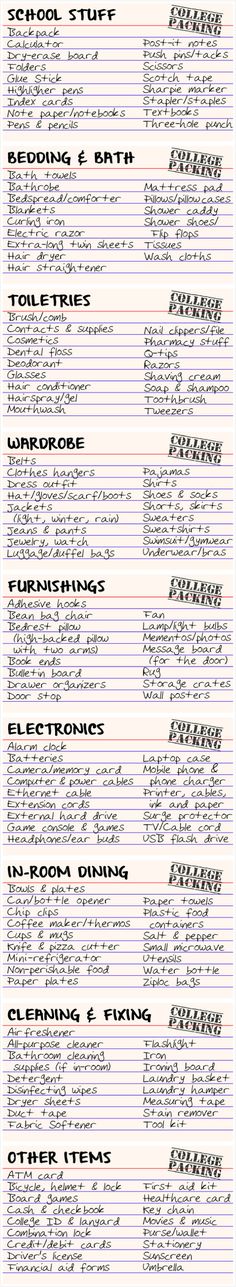 SCHOOL STUFF
COLLEGE PACKING
Backpack
Calculator
Dry-erase board
Folders
Glue Stick
Highlighter pens
Index cards
Note paper/notebooks
Pens & pencils
Post-it notes
Push pins/tacks
Scissors
Scotch tape
Sharpie marker
Stapler/staples
Textbooks
Three-hole punch
BEDDING & BATH
COLLEGE PACKING
Bath towels
Bathrobe
Bedspread/comforter
Blankets
Curling iron
Electric razor
Extra-long twin sheets
Hair dryer
Hair straightener
Mattress pad
Pillows/pillowcases
Shower caddy
Shower shoes/
Flip flops
Tissues
Wash cloths
TOILETRIES
COLLEGE PACKING
Brush/comb
Contacts & supplies
Cosmetics
Dental floss
Deodorant
Glasses
Hair conditioner
Hairspray/gel
Mouthwash
Nail clippers/file
Pharmacy stuff
Q-tips
Razors
Shaving cream
Soap & shampoo
Toothbrush
Tweezers
WARDROBE
COLLEGE PACKING
Belts
Clothes hangers
Dress outfit
Hat/gloves/scarf/boots
Jackets
(light, winter, rain)
Jeans & pants
Jewelry, watch
Luggage/duffel bags
Pajamas
Shirts
Shoes & socks
Shorts, skirts
Sweaters
Sweatshirts
Swimsuit/gymwear
Underwear/bras
FURNISHINGS
COLLEGE PACKING
Adhesive hooks
Bean bag chair
Bedrest pillow
(high-backed pillow
with two arms)
Book ends
Bulletin board
Drawer organizers
Door stop
Fan
Lamp/light bulbs
Mementos/photos
Message board
(for the door)
Rug
Storage crates
Wall posters
ELECTRONICS
COLLEGE PACKING
Alarm clock
Batteries
Camera/memory card
Computer & power cables
Ethernet cable
Extension cords
External hard drive
Game console & games
Headphones/ear buds
Laptop case
Mobile phone &
phone charger
Printer, cables,
ink and paper
Surge protector
TV/Cable cord
USB flash drive
IN-ROOM DINING
COLLEGE PACKING
Bowls & plates
Can/bottle opener
Chip clips
Coffee maker/thermos
Cups & mugs
Knife & pizza cutter
Mini-refrigerator
Non-perishable food
Paper plates
Paper towels
Plastic food
containers
Salt & pepper
Small microwave
Utensils
Water bottle
Ziploc bags
CLEANING & FIXING
COLLEGE PACKING
Air freshener
All-purpose cleaner
Bathroom cleaning
supplies (if in-room)
Detergent
Disinfecting wipes
Dryer sheets
Duct tape
Fabric Softener
Flashlight
Iron
Ironing board
Laundry basket
Laundry hamper
Measuring tape
Stain remover
Tool kit
OTHER ITEMS
COLLEGE PACKING
ATM card
Bicycle, helmet & lock
Board games
Cash & checkbook
College ID & lanyard
Combination lock
Credit/debit cards
Driver's license
Financial aid forms
First aid kit
Healthcare card
Key chain
Movies & music
Purse/wallet
Stationery
Sunscreen
Umbrella